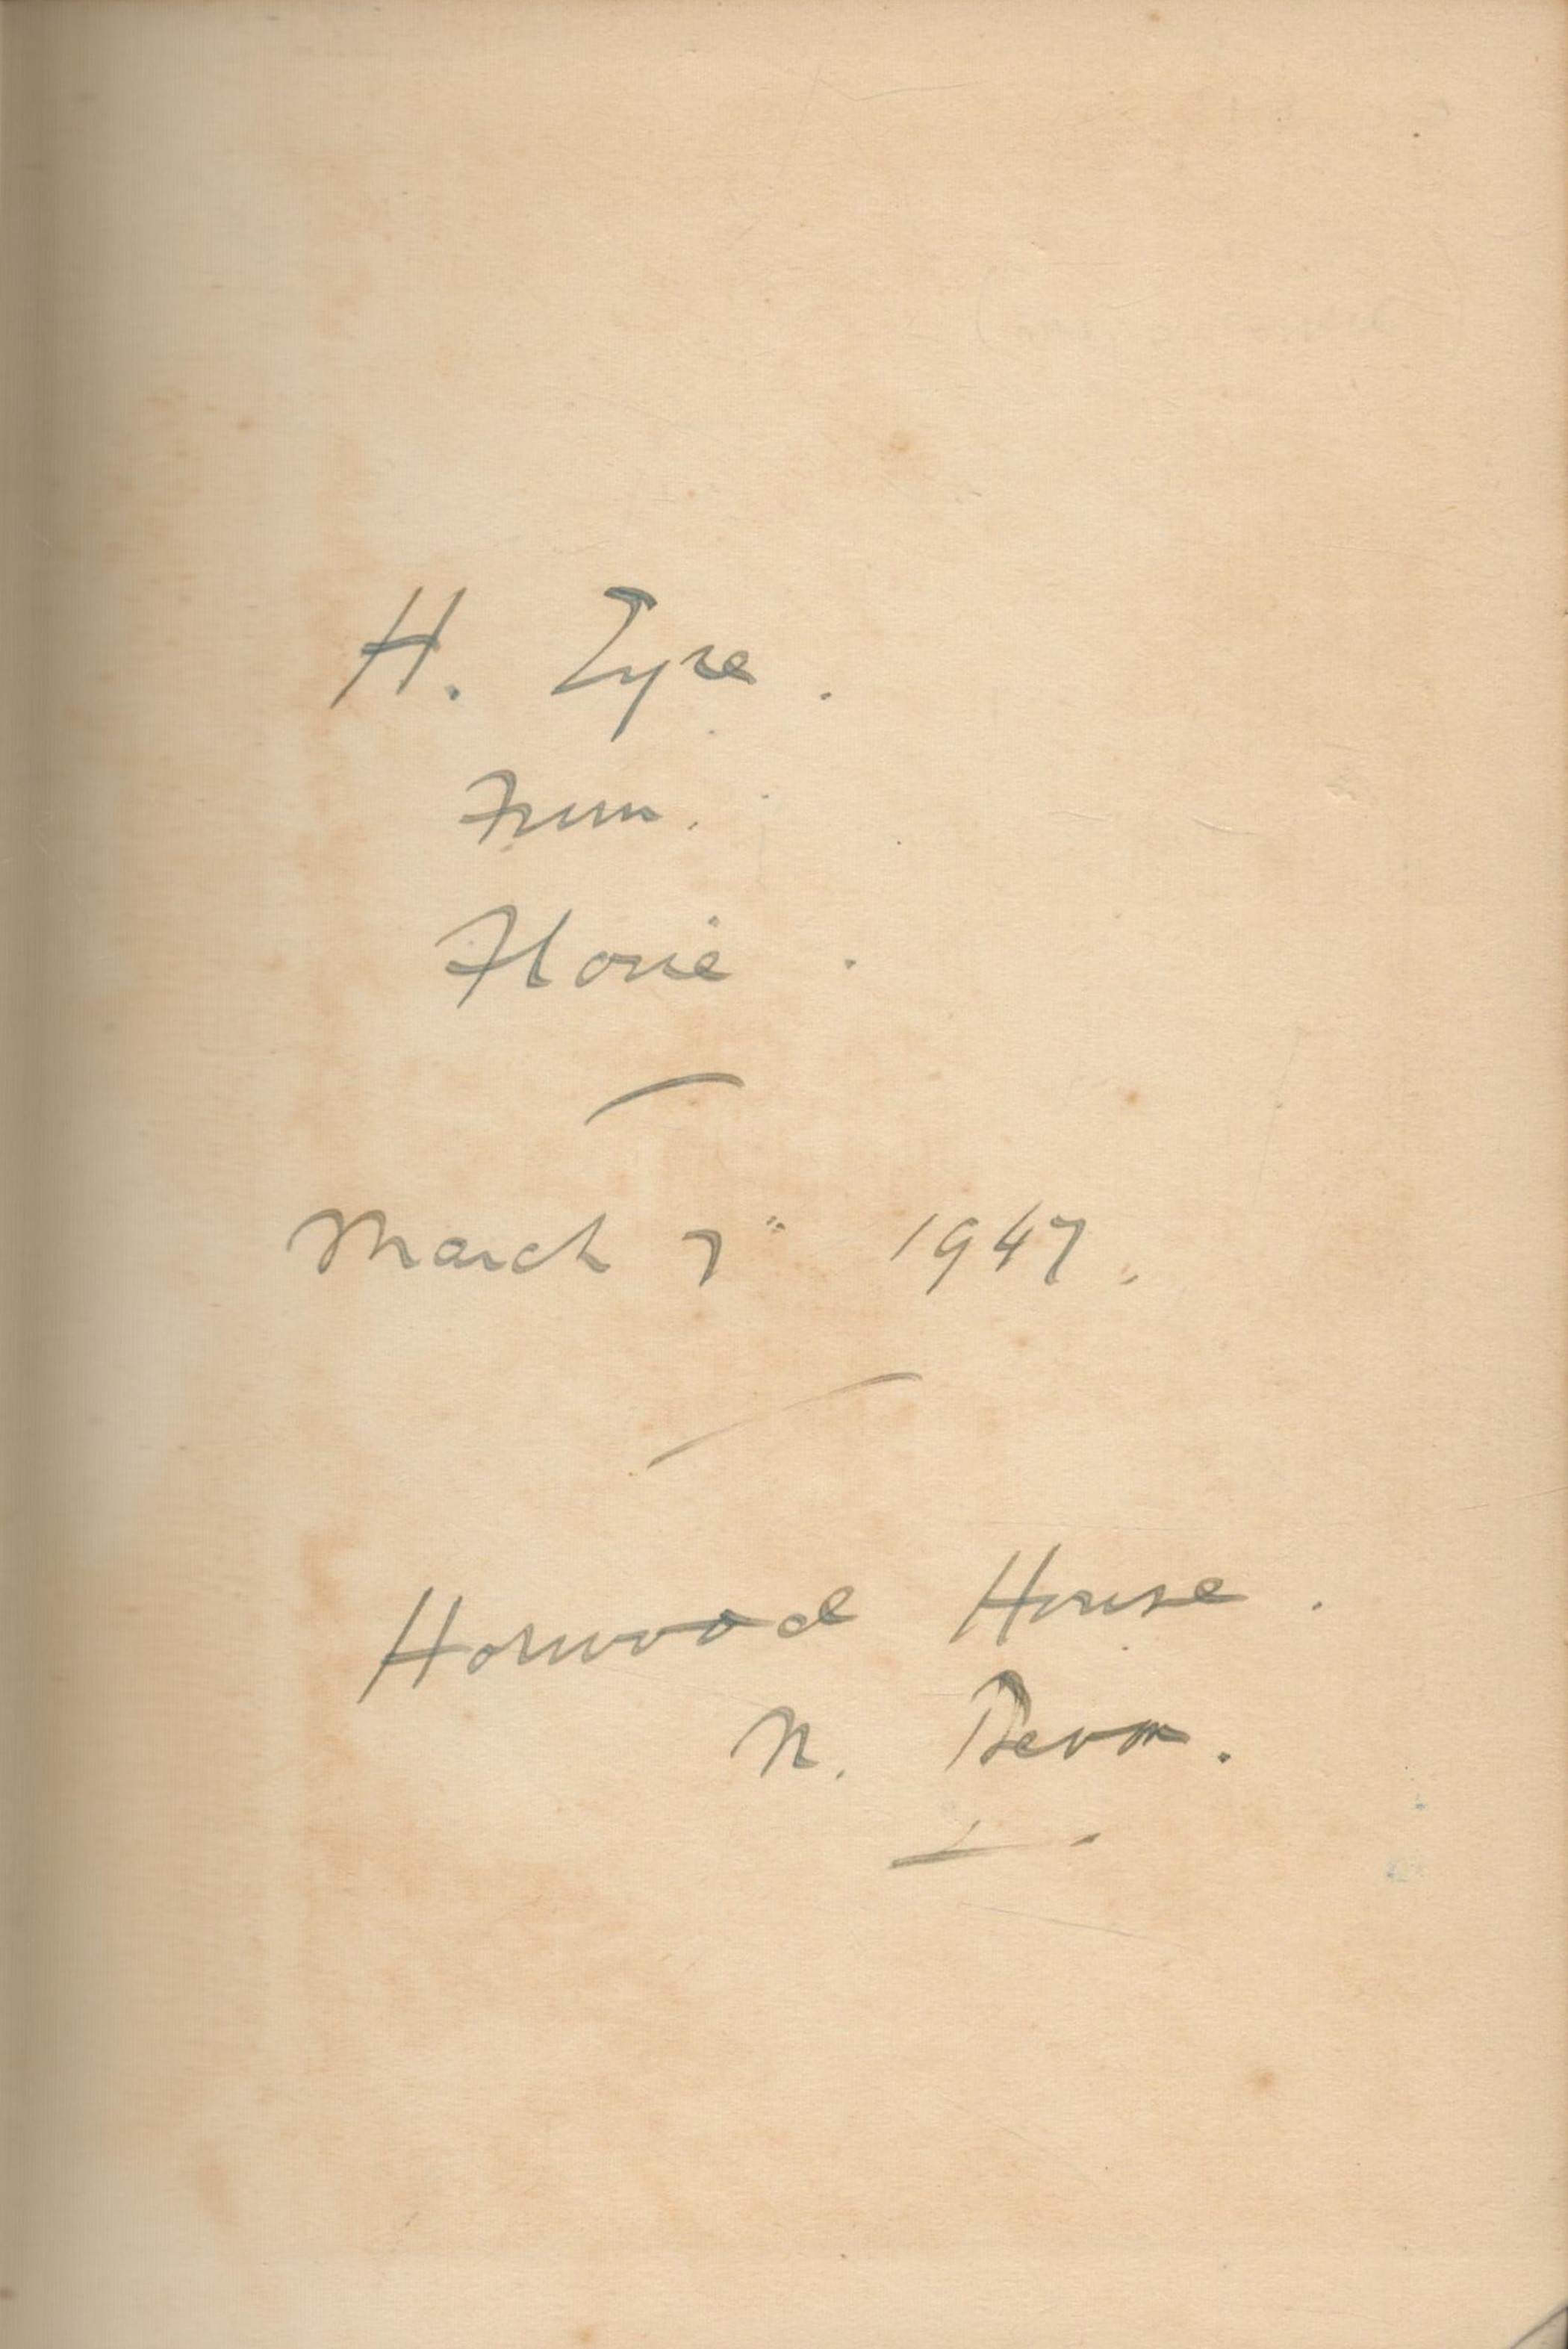 H. Eyre.
From.
Florie.
March 7" 1947.
Horwood House.
N. Devon.